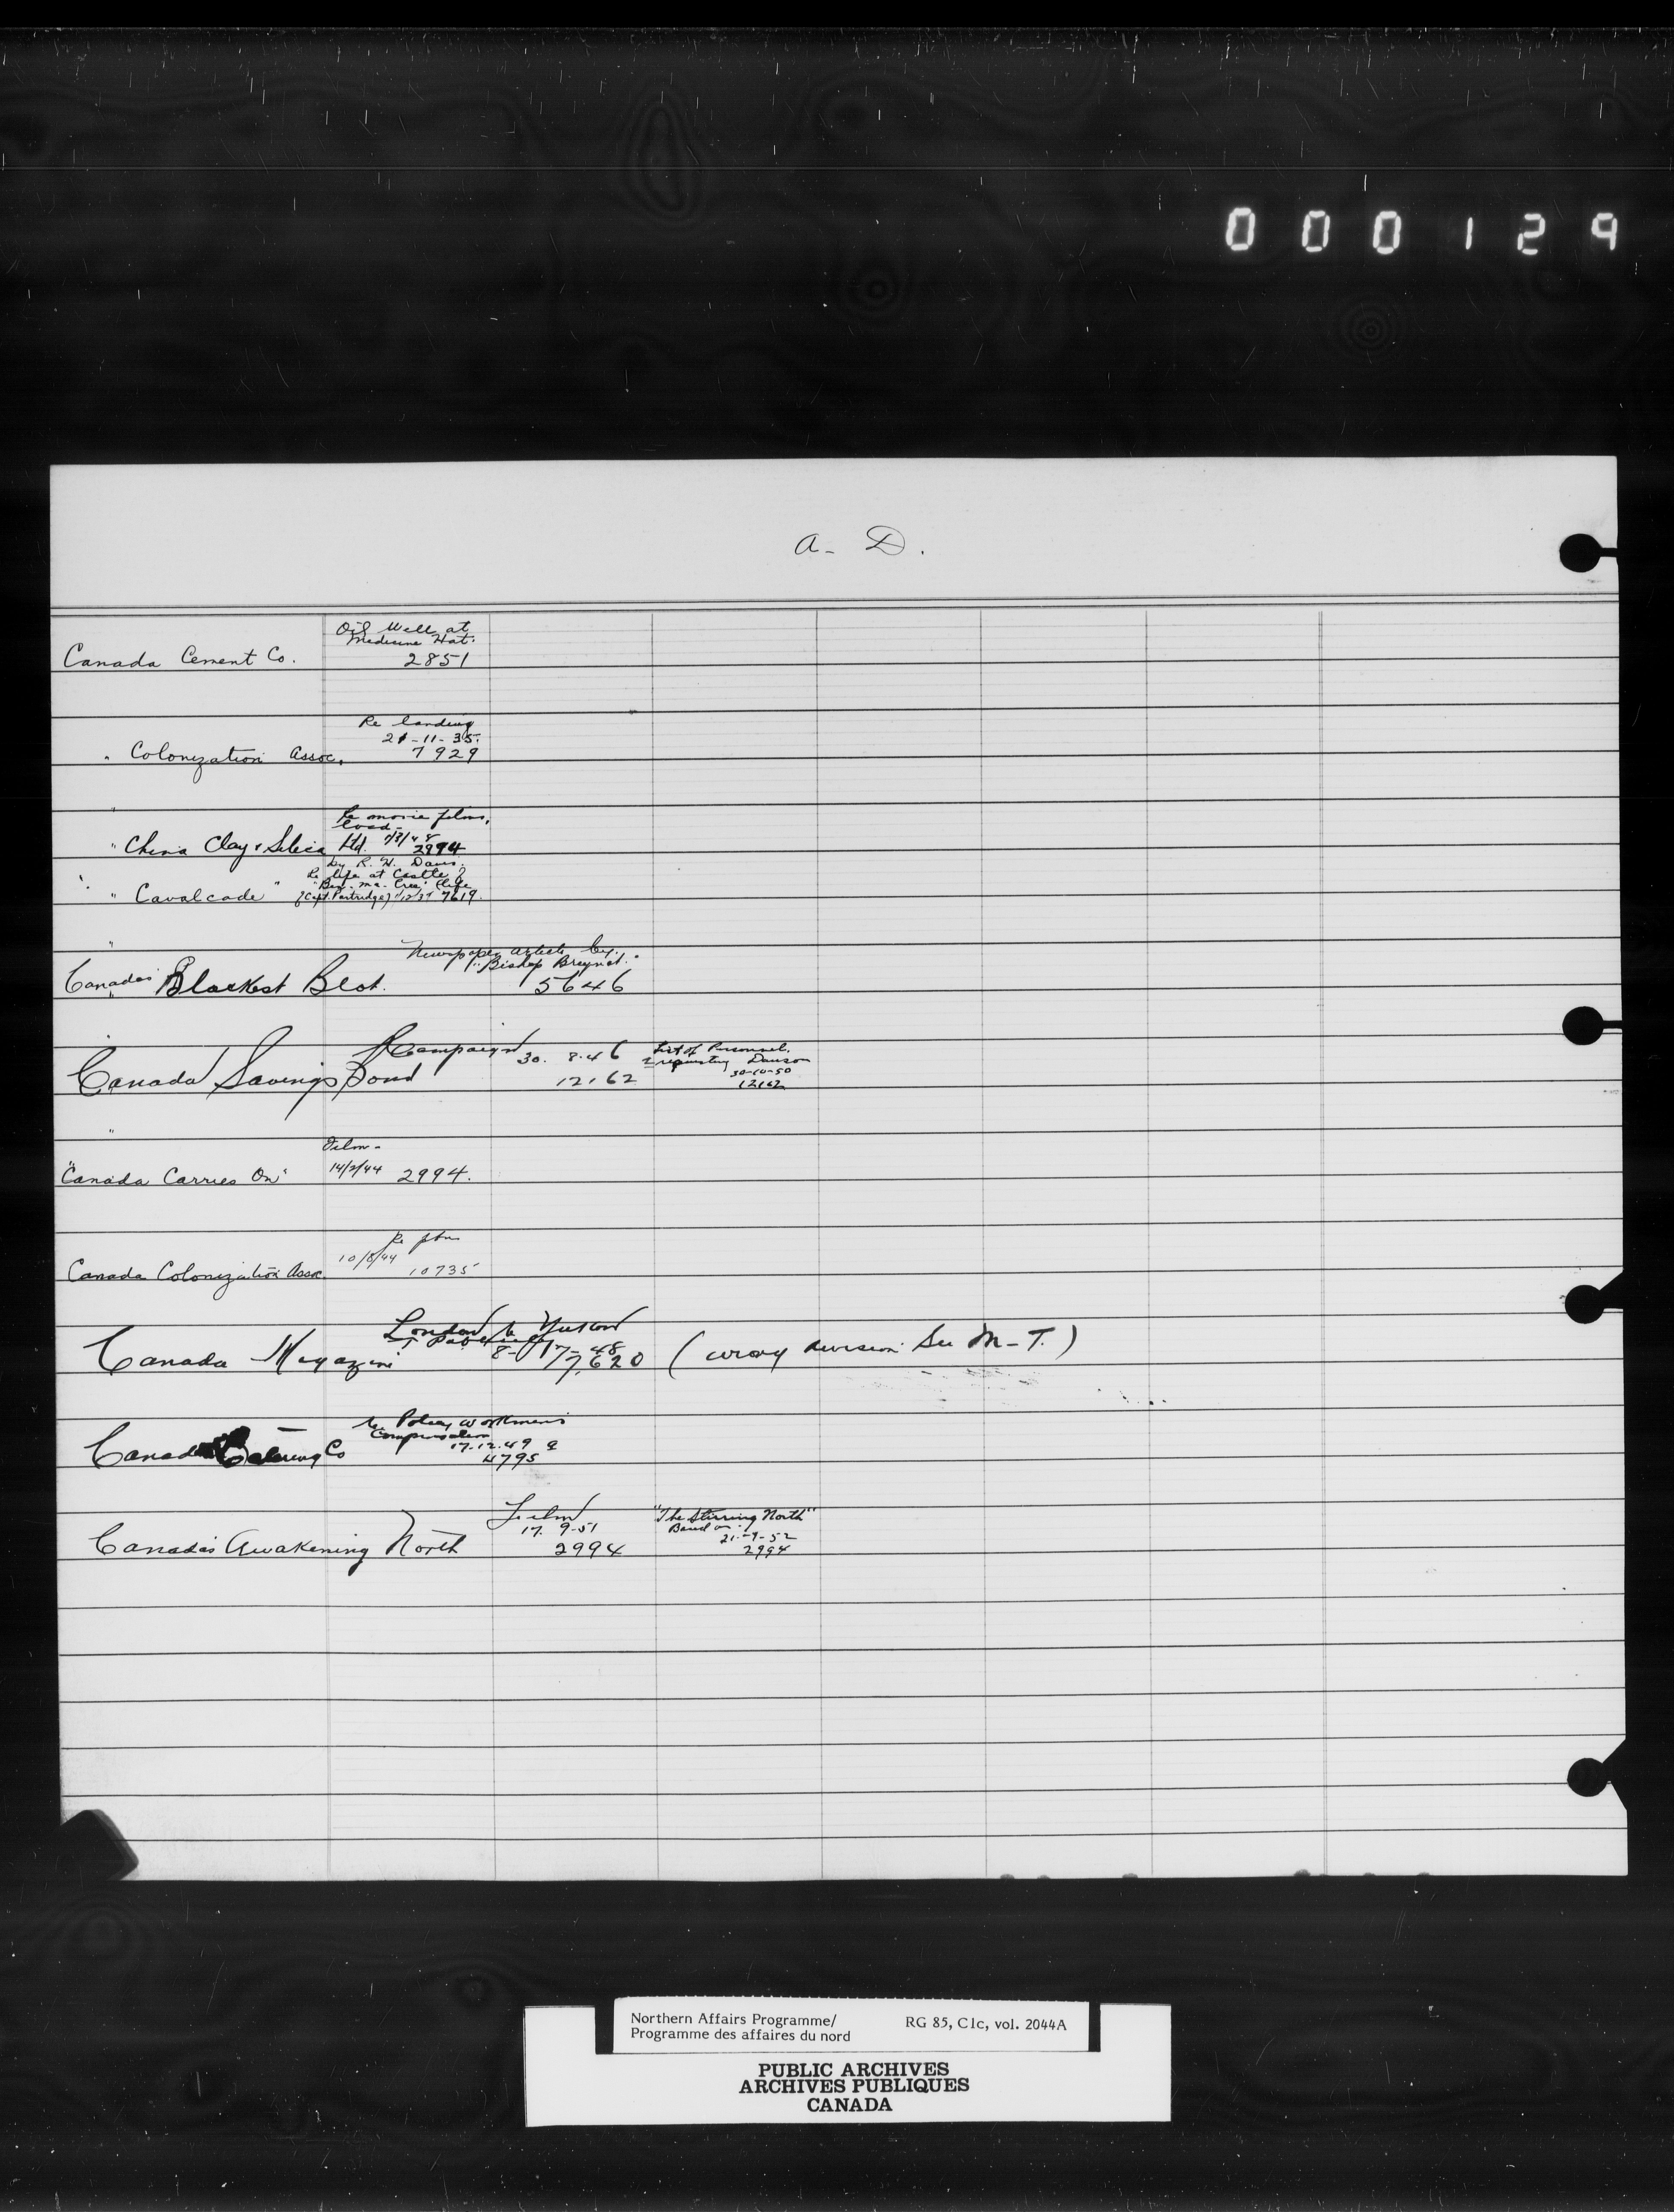 000129
A - D.
Oil Well at
Medicine Hat.
Canada Cement Co. 2851
Re landing
21-11-35.
" Colonization Assoc. 7929
"
Re movie films,
" China Clay & Silica Ltd. 2994
by R. H. Davis.
Re life at Castle
" Cavalcade " (Capt. Partridge) 7619.
"
Newspaper article by
"Bishop Breynat."
Canada's Blackest Blot. 5646
Campaign 30. 8.46 List of Personnel.
requesting Dawson
30-10-50
Canada Savings Bond 12162 12162
"
Film-
"Canada Carries On" 14/2/44 2994.
Re
10/8/44
Canada Colonization Assoc. 10735
London to Yukon
8- 17- 48
Canada Magazine 7620 (wrong division See M-T.)
Re Policy Workmen's
Compensation
17.12.49
Canada Catering Co 4795
Film "The Stirring North"
17. 9-51 Based on
21-9-52
Canada's Awakening North 2994 2994
Northern Affairs Programme/ RG 85, C1c, vol. 2044A
Programme des affaires du nord
PUBLIC ARCHIVES
ARCHIVES PUBLIQUES
CANADA